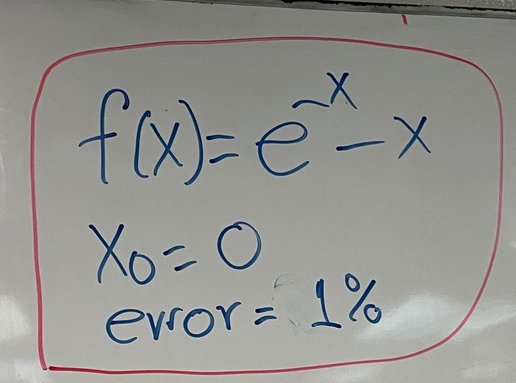 f(x) = e^{-x} - x
x₀ = 0
error = 1%